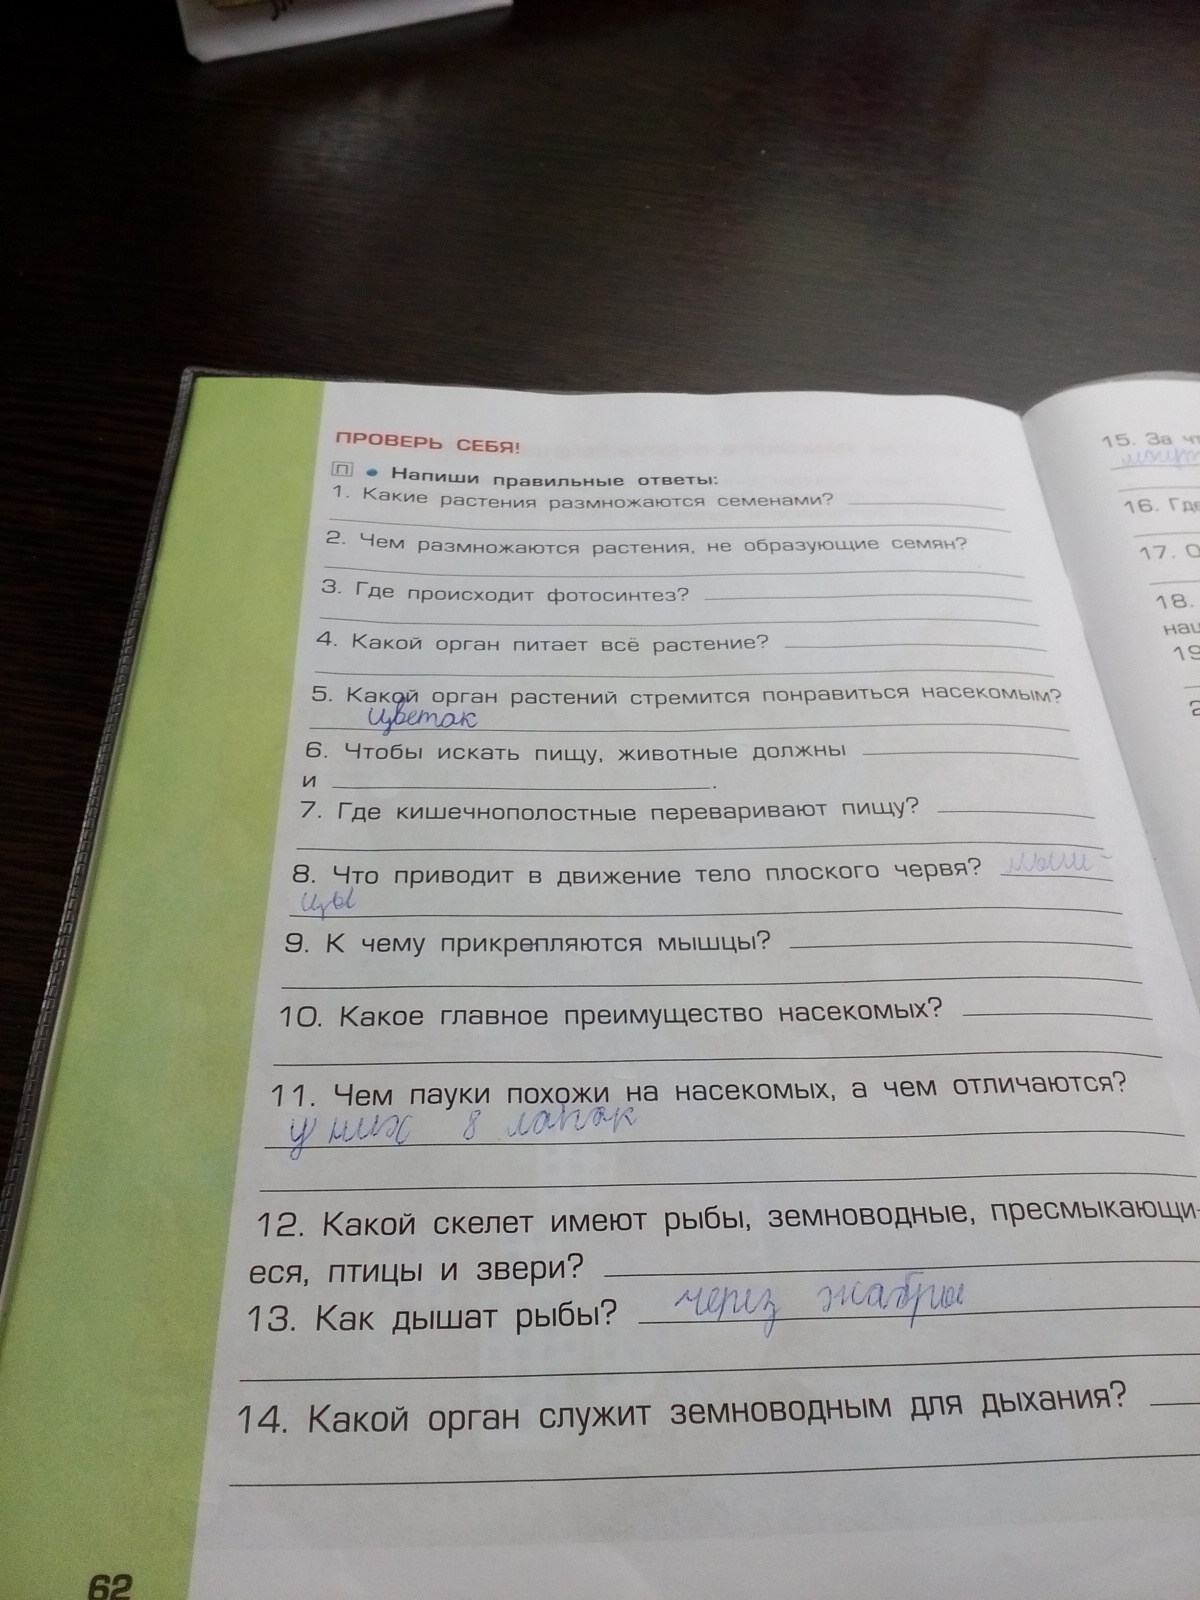 ПРОВЕРЬ СЕБЯ!
П • Напиши правильные ответы:
1. Какие растения размножаются семенами?
2. Чем размножаются растения, не образующие семян?
3. Где происходит фотосинтез?
4. Какой орган питает всё растение?
5. Какой орган растений стремится понравиться насекомым?
цветок
6. Чтобы искать пищу, животные должны
и .
7. Где кишечнополостные переваривают пищу?
8. Что приводит в движение тело плоского червя? мыш-
цы
9. К чему прикрепляются мышцы?
10. Какое главное преимущество насекомых?
11. Чем пауки похожи на насекомых, а чем отличаются?
у них 8 лапок
12. Какой скелет имеют рыбы, земноводные, пресмыкающи-
еся, птицы и звери?
13. Как дышат рыбы? через жабры
14. Какой орган служит земноводным для дыхания?
62
15. За
16. Где
17. О
18.
19
2